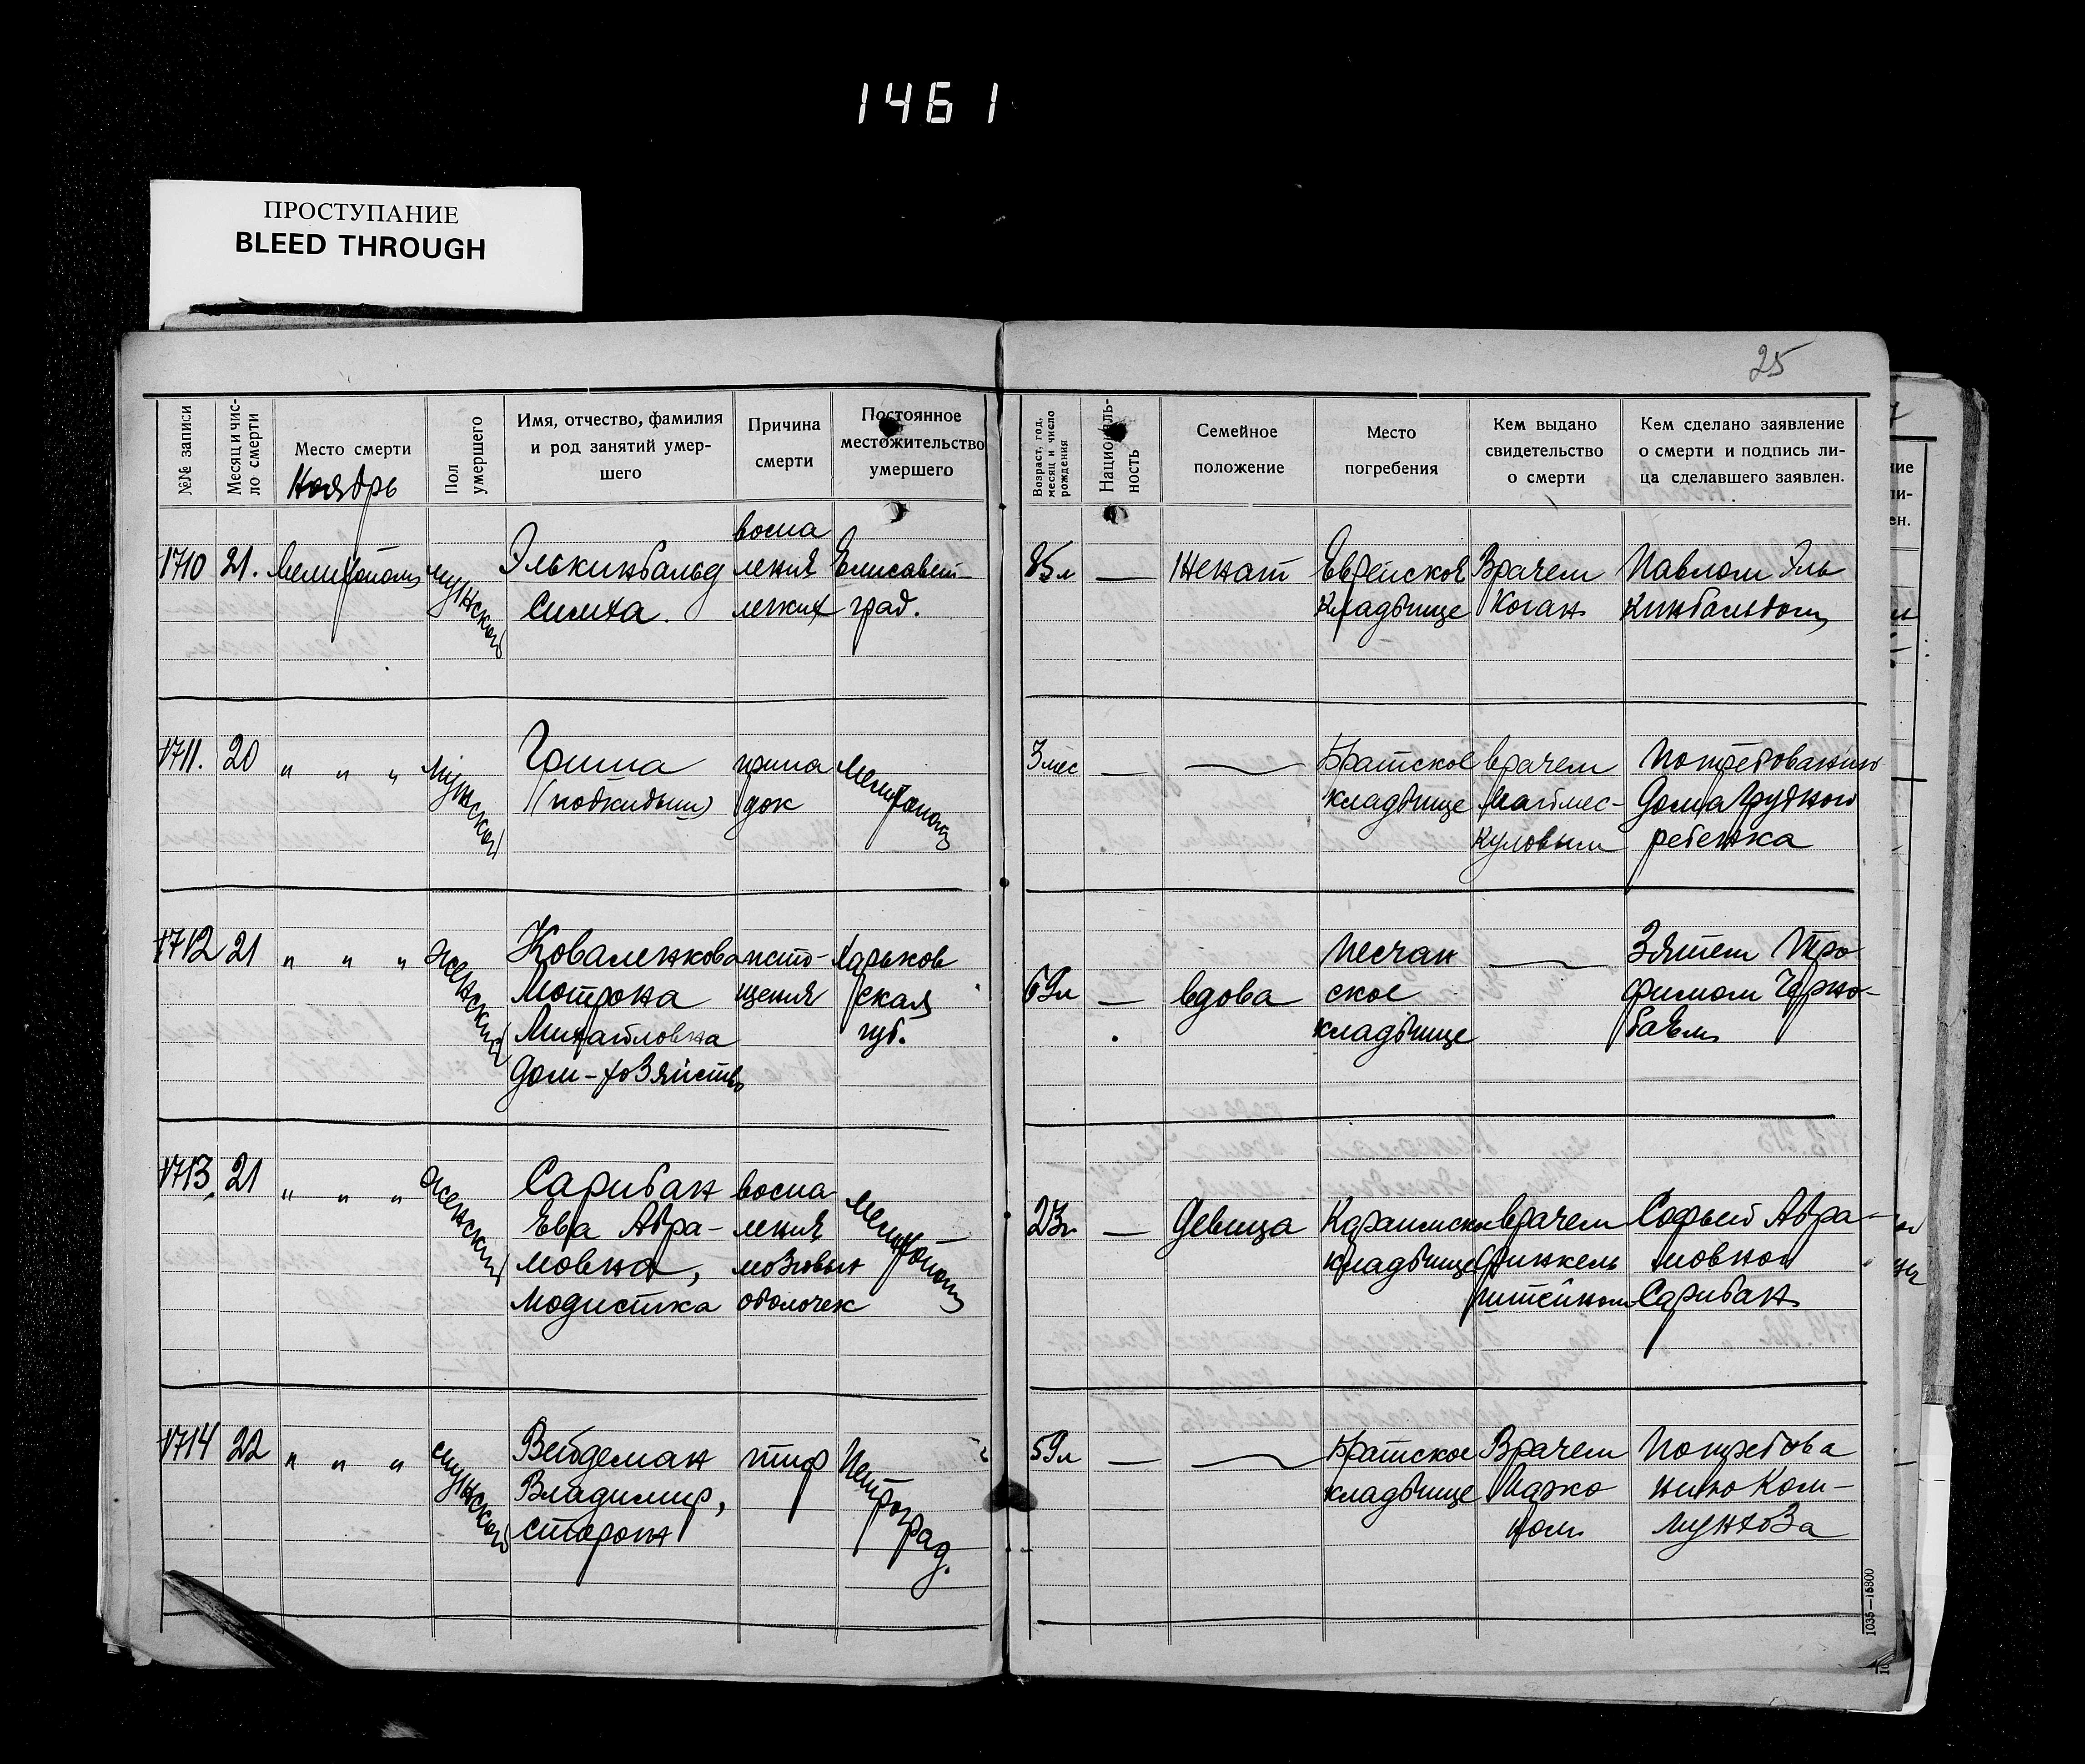 1461
ПРОСТУПАНИЕ
BLEED THROUGH
25
№№ записи
Месяц и чис-
ло смерти
Место смерти
Ноябрь
Пол
умершего
Имя, отчество, фамилия
и род занятий умер-
шего
Причина
смерти
Постоянное
местожительство
умершего
Возраст, год,
месяц и число
рождения
Националь-
ность
Семейное
положение
Место
погребения
Кем выдано
свидетельство
о смерти
Кем сделано заявление
о смерти и подпись ли-
ца сделавшего заявлен.
1710
21.
Мелитополь
мужской
Элькинбальд
Симха.
воспа
ления
легких
Елисавет-
град.
85л
—
Женат
Еврейское
кладбище
Врачем
Коган
Павлом Эль
кинбальдом
1711.
20
" " "
мужской
Гриша
(подкидыш)
припа
док
Мелитополь
3 мес
—
—
Братское
кладбище
врачем
По требованию
Дома грудного
ребенка
1712
21
" " "
женский
Коваленкова
Мотрона
Михайловна
Дом-хозяйство
исто-
щения
Харьков
ская
губ.
69л
—
вдова
Песчан
ское
кладбище
—
Зятем Тро
фимом Черно-
баем
1713.
21
" " "
женский
Сарибан
Ева Авра-
мовна,
модистка
воспа
ления
мозговых
оболочек
Мелитополь
23г
—
Девица
кладбище
врачем
Финкель
штейном
Софьей Авра-
мовной
Сарибан
1714
22
" " "
мужской
Вейдеман
Владимир,
сторож
тиф
Петроград.
59л
—
—
Братское
кладбище
Врачем
По требова
нию Ком-
мунхоза
1035—15800